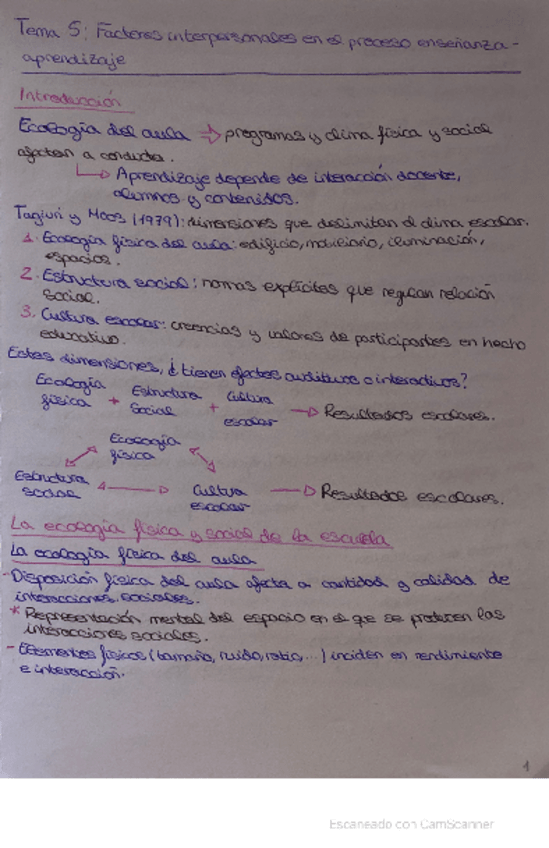 Tema 5: Factores interpersonales en el proceso enseñanza-
aprendizaje
Introducción
Ecología del aula → programas y clima física y social
afectan a conducta.
→ Aprendizaje depende de interacción docente,
alumnos y contenidos.
Tagiuri y Moos (1979): dimensiones que delimitan el clima escolar.
1. Ecología física del aula: edificio, mobiliario, iluminación,
espacios.
2. Estructura social: normas explícitas que regulan relación
social.
3. Cultura escolar: creencias y valores de participantes en hecho
educativo.
Estas dimensiones, ¿tienen efectos auditivos o interactivos?
Ecología física + Estructura social + Cultura escolar → Resultados escolares.
Ecología
física
Estructura social ↔ Cultura escolar → Resultados escolares.
La ecología física y social de la escuela
La ecología física del aula
- Disposición física del aula afecta a cantidad y calidad de
interacciones sociales.
* Representación mental del espacio en el que se producen las
interacciones sociales.
- Elementos físicos (tamaño, ruido, ratio, ...) inciden en rendimiento
e interacción.
1
Escaneado con CamScanner